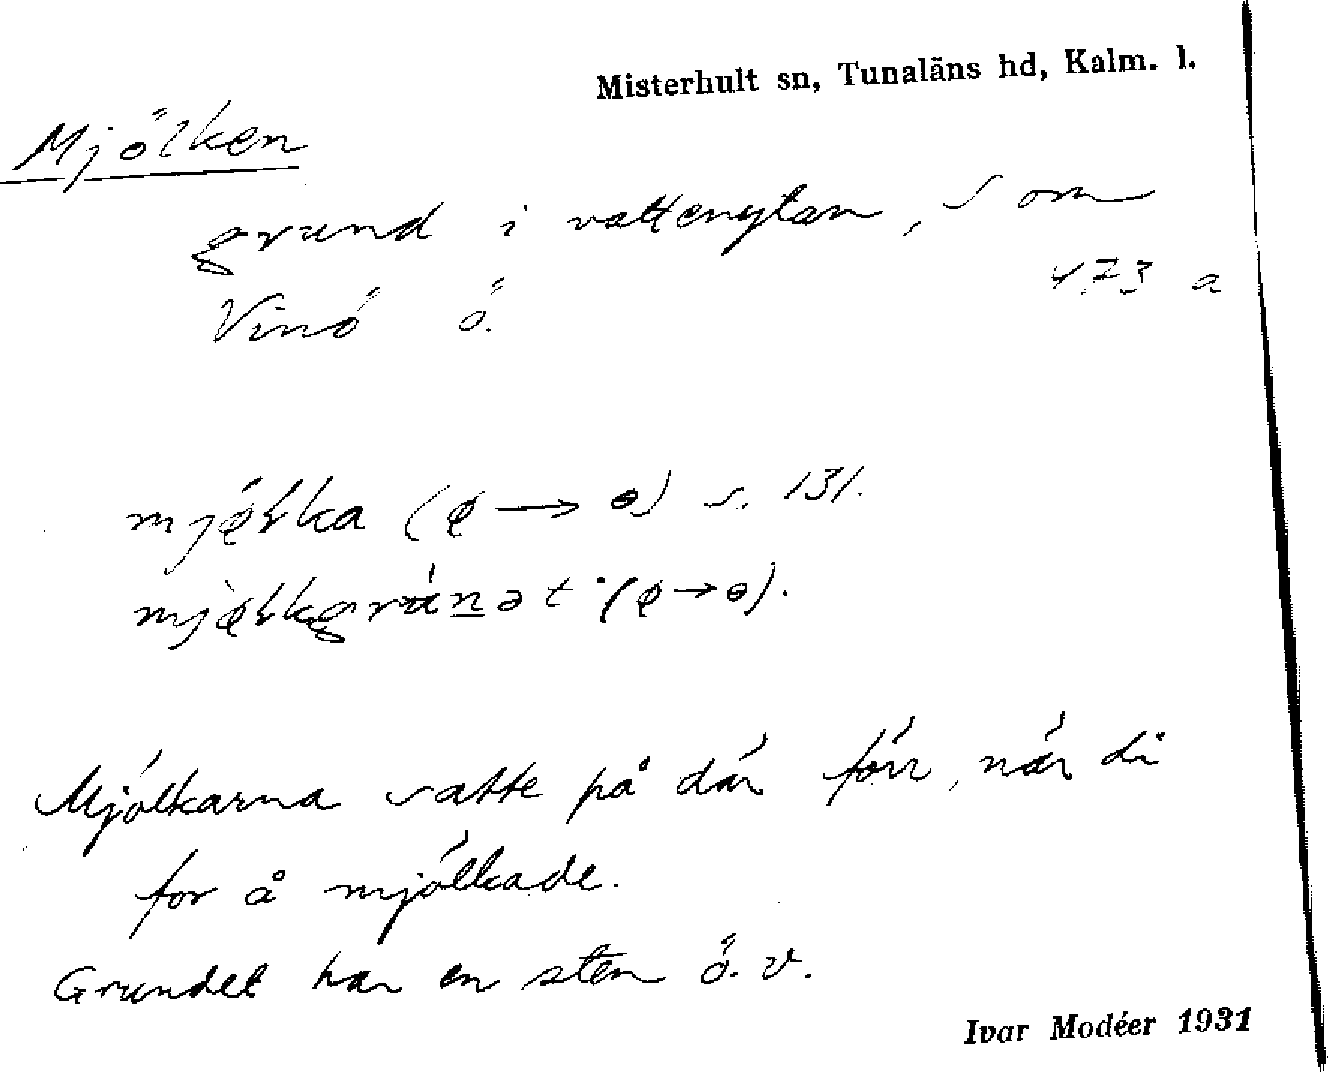 Misterhult sn, Tunaläns hd, Kalm. l.
Mjölken
grund i vattenytan, som
473 a
Vinö ö.
(ø → ɵ) s. 131.
(ø → ɵ).
Mjölkarna satte på där förr, när di
for å mjölkade.
Grundet har en sten ö. v.
Ivar Modéer 1931